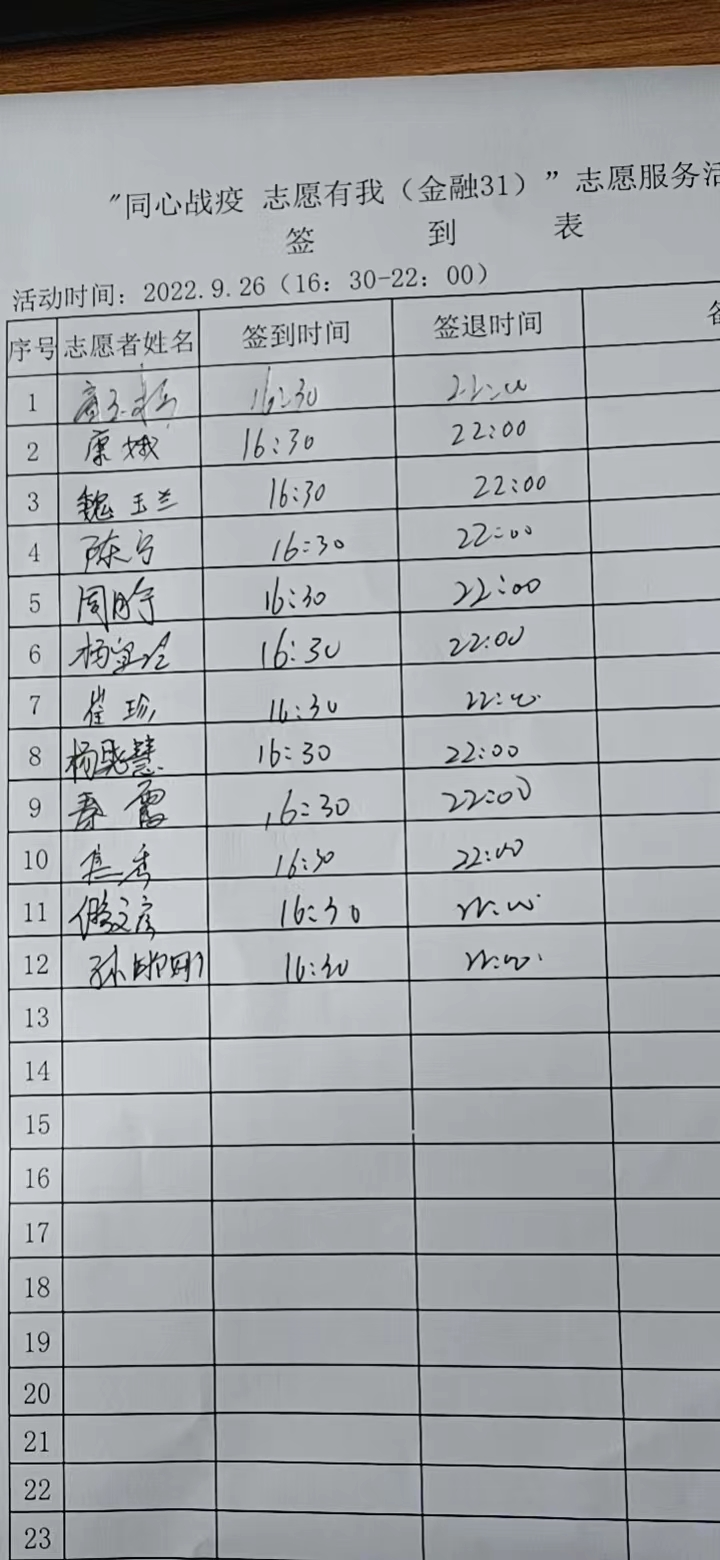 "同心战疫 志愿有我（金融31）”志愿服务活
签 到 表
活动时间：2022.9.26（16：30-22：00）
序号 志愿者姓名 签到时间 签退时间
1 16:30 22:00
2 康娥 16:30 22:00
3 魏玉兰 16:30 22:00
4 陈宁 16:30 22:00
5 周 16:30 22:00
6 杨 16:30 22:00
7 崔珍 16:30 22:00
8 杨晓慧 16:30 22:00
9 秦霞 16:30 22:00
10 焦秀 16:30 22:00
11 16:30 22:00
12 孙 16:30 22:00
13
14
15
16
17
18
19
20
21
22
23